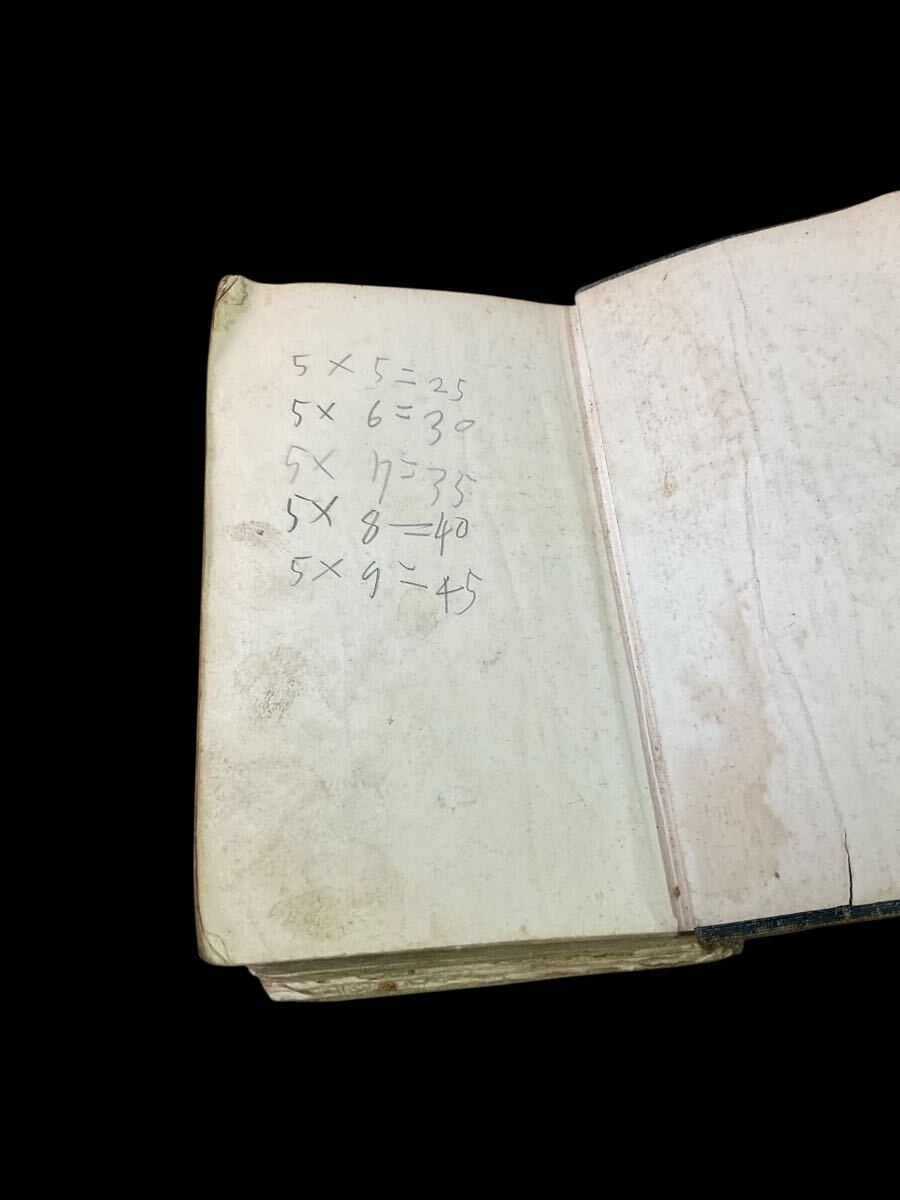 5 × 5 = 25
5 × 6 = 30
5 × 7 = 35
5 × 8 = 40
5 × 9 = 45